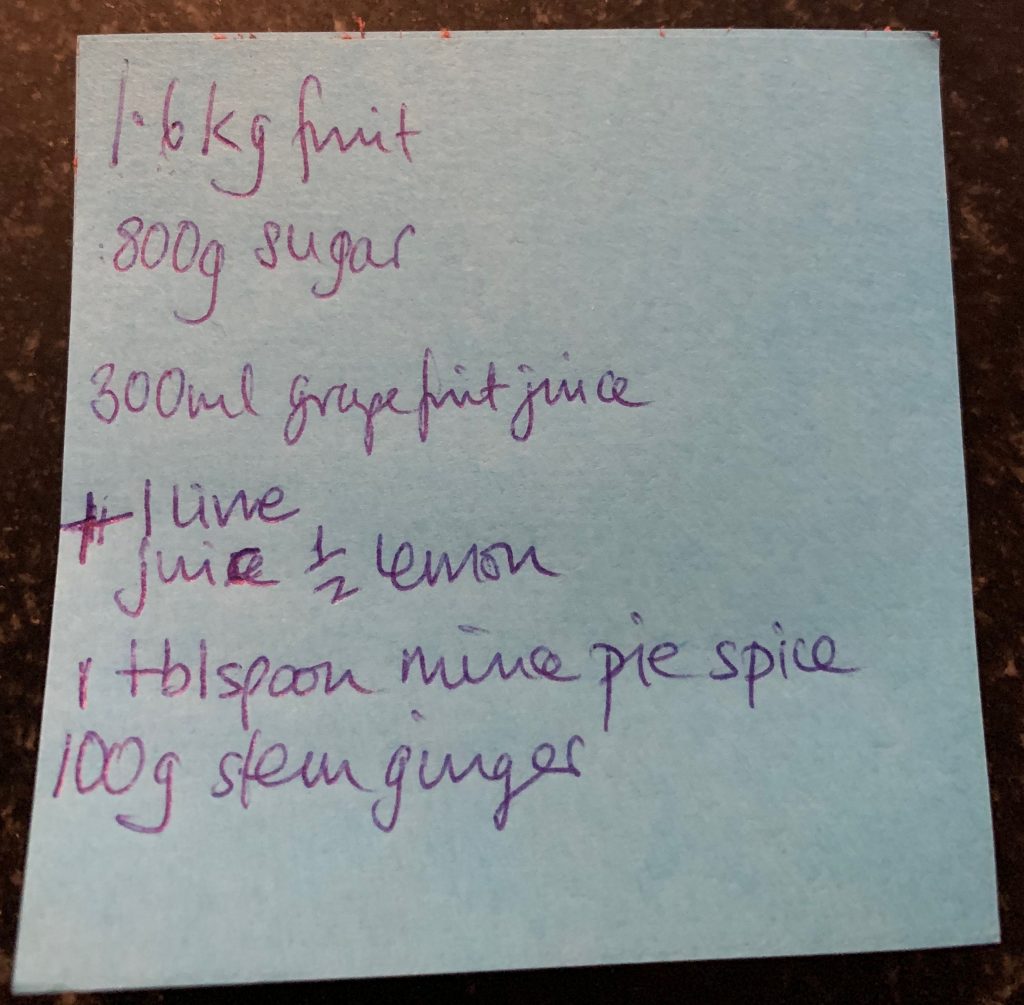 1.6kg fruit
800g sugar
300ml grapefruit juice
+ 1 lime
juice 1/2 lemon
1 tblspoon mince pie spice
100g stem ginger